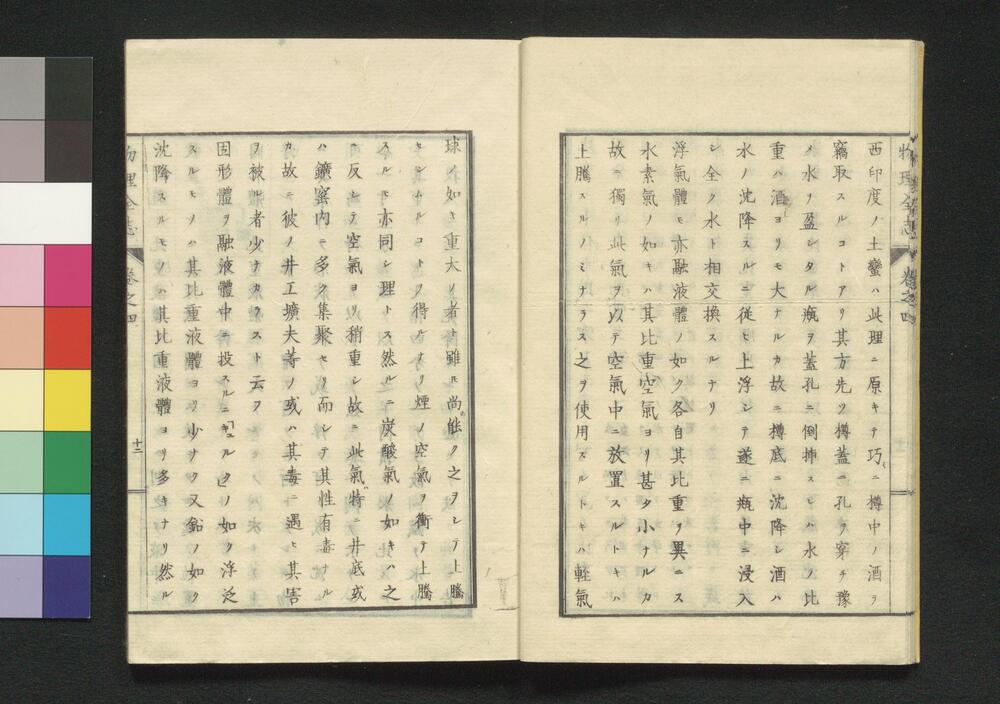 物理全志 卷之四
西印度ノ土蠻ハ此理ニ原キテ巧ニ樽中ノ酒ヲ
竊取スルコトアリ其方先ツ樽蓋ニ孔ヲ穿チ豫
メ水ヲ盈シタル瓶ヲ蓋孔ニ倒挿スレハ水ノ比
重ハ酒ヨリモ大ナルカ故ニ樽底ニ沈降シ酒ハ
水ノ沈降スルニ從ヒ上浮シテ遂ニ瓶中ニ浸入
シ全ク水ト相交換スルナリ
浮氣體モ亦融液體ノ如ク各自其比重ヲ異ニス
水素氣ノ如キハ其比重空氣ヨリ甚タ小ナルカ
故ニ獨リ此氣ヲ以テ空氣中ニ放置スルトキハ
上騰スルノミナラス之ヲ使用スルトキハ輕氣
球ノ如キ重大ノ者ト雖モ尚能ク之ヲシテ上騰
セシムルコトヲ得ルナリ煙ノ空氣ヲ衝テ上騰
スルモ亦同シ理トス然ルニ炭酸氣ノ如キハ之
ニ反シテ空氣ヨリ稍重シ故ニ此氣特ニ井底或
ハ鑛窖内ニ多ク集聚セリ而シテ其性有毒ナル
カ故ニ彼ノ井工壙夫等ノ或ハ其毒ニ遇ヒ其害
ヲ被ル者少ナカラスト云フ
固形體ヲ融液體中ニ投スルニ「キユルク」ノ如ク浮泛
スルモノハ其比重液體ヨリ少ナク又鉛ノ如ク
沈降スルモノハ其比重液體ヨリ多キナリ然ル
物理全志 卷之四 十二